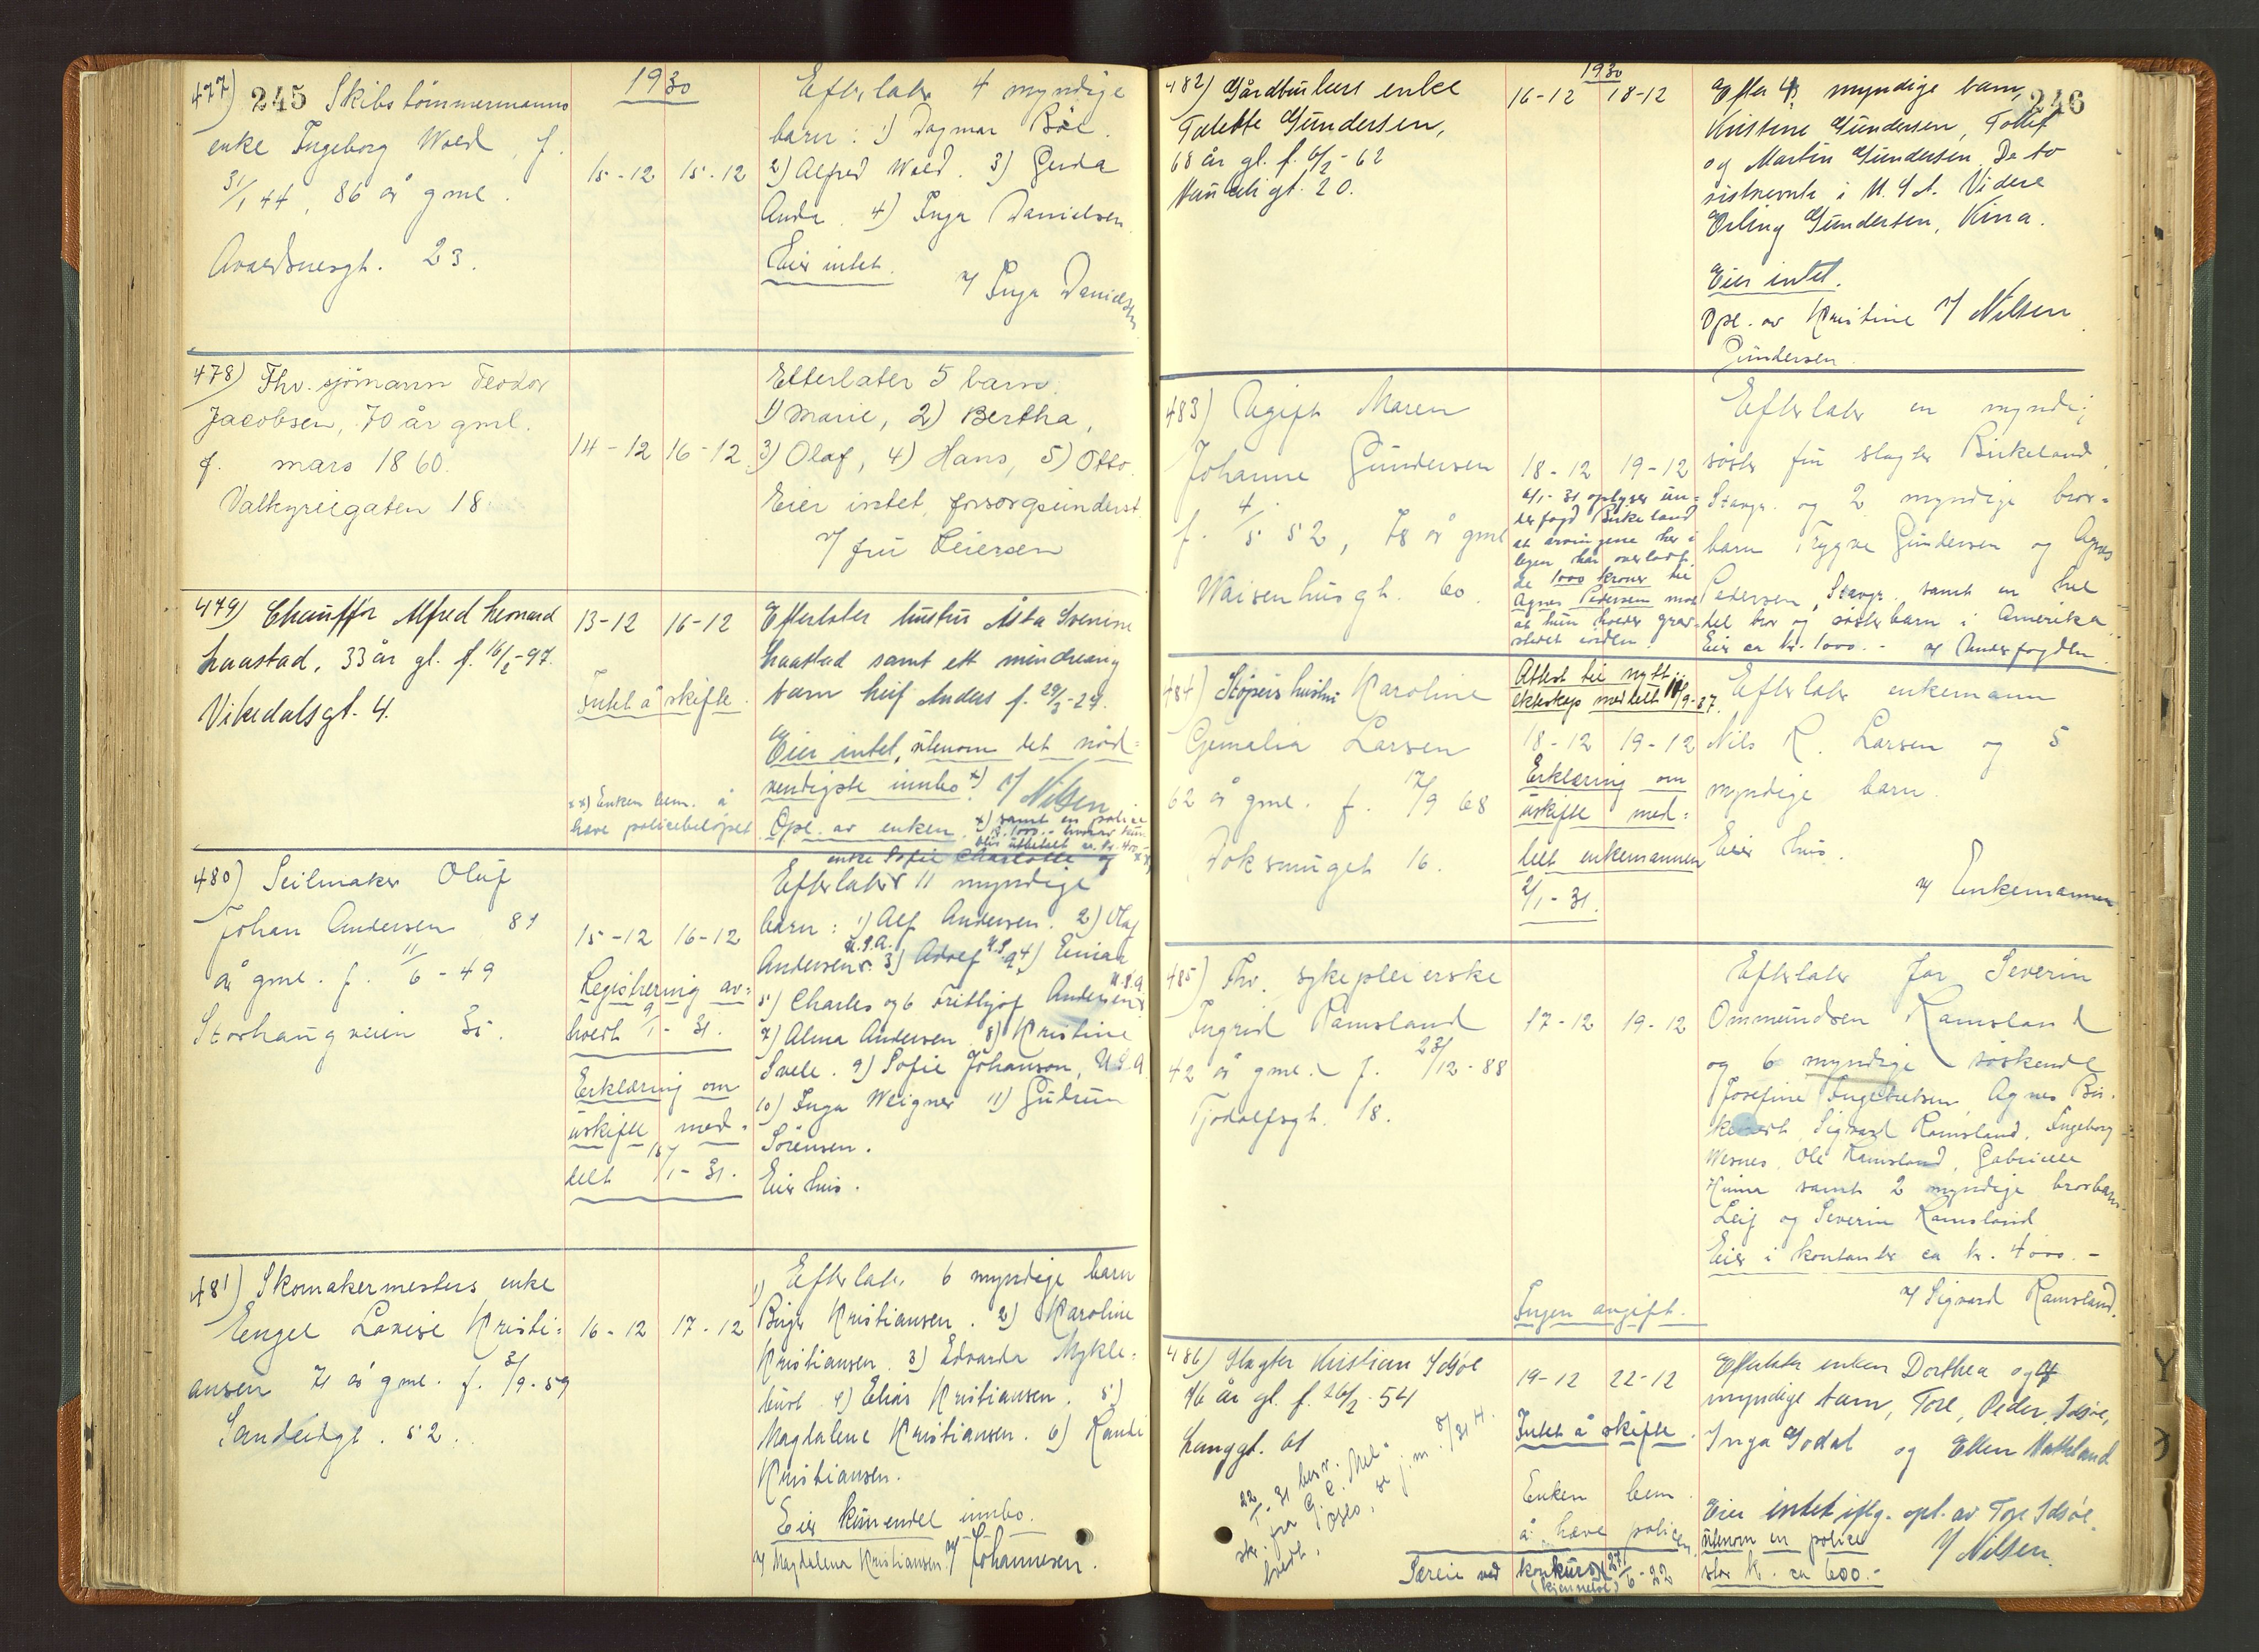 477) 245 Skibstömmermanns
enke Ingeborg Wold, f.
31/1 44, 86 år gml.
Avaldsnesgt. 23.
1930
15-12 15-12
Efterlater 4 myndige
barn: 1) Dagmar Böe.
2) Alfred Wold. 3) Gerda
Anda. 4) Inga Danielsen
Eier intet.
v/ Inga Danielsen
478) Fhv. sjömann Teodor
Jacobsen, 70 år gml.
f. mars 1860.
Valkyriegaten 18
14-12 16-12
Etterlater 5 barn.
1) Marie, 2) Bertha,
3) Olaf, 4) Hans, 5) Otto.
Eier intet, forsorgsunderst.
v/ fru Leiersen
479) Chauffør Alfred Leonard
Haastad, 33 år gl. f. 16/2-97.
Vikedalsgt. 4.
13-12 16-12
Intet å skifte.
xx) Enken bem. å
heve policebeløpet
Efterlater hustru Asta Svenine
Haastad samt ett mindreårig
barn Leif Anders f. 29/3-29.
Eier intet, utenom det nöd-
vendigste innbo x) v/ Nilsen.
Opl. av enken. x) samt en police
kr. 1000.- hvorav kun
blir utbetalt ca. kr. 400.- xx)
480) Seilmaker Oluf
Johan Andersen, 81
år gml. f. 11/6-49
Storhaugveien 35.
15-12 16-12
Registrering av-
holdt 9/1-31.
Erklæring om
uskifte med-
delt 15/1-31.
enke Sofie Charlotte og
Efterlater 11 myndige
barn: 1) Alf Andersen. 2) Olaf
Andersen U.S.A. 3) Adolf U.S.A. 4) Einar
5) Charles og 6 Frithjof Andersen U.S.A.
7) Alma Andersen 8) Kristine
Svele. 9) Sofie Johanson, U.S.A
10) Inga Weigner 11) Gudrun
Sörensen.
Eier hus.
481) Skomakermesters enke
Engel Lovise Kristi-
ansen 71 år gml. f. 3/9-59
Sandeidgt. 52.
16-12 17-12
Efterlater 6 myndige barn
1) Birger Kristiansen. 2) Karoline
Kristiansen. 3) Edvarda Mykle-
bust. 4) Elias Kristiansen. 5)
Magdalene Kristiansen. 6) Randi
Kristiansen.
Eier kun endel innbo.
v/ Magdalena Kristiansen. v/ Johannesen.
246
482) Gårdbrukers enke
Talette Gundersen,
68 år gl. f. 6/2-62
1930
16-12 18-12
Efter 4 myndige barn,
Kristine Gundersen, Tollef
og Martin Gundersen. De to
sistnevnte i U.S.A. Videre
Erling Gundersen, Kina.
Eier intet.
Opl. av Kristine v/ Nilsen
Gundersen.
483) Ugift Maren
Johanne Gundersen
f. 4/5 52, 78 år gml
Waisenhusgt. 60
18-12 19-12
oplyser un-
derfogd Birkeland
at arvingene her i
byen har overlatt
de 1000 kroner til
Agnes Pedersen mot
at hun holder grav-
stedet iorden.
Efterlater en myndig
søster fru slagter Birkeland,
Stavgr. og 2 myndige bror-
barn Trygve Gundersen og Agnes
Pedersen, Stavgr. samt en hel
del bror og søsterbarn i Amerika
Eier ca kr. 1000.- v/ Underfogden.
484) Støpers hustru Karoline
Larsen
62 år gml. f. 17/9 68
Doksmuget 16.
Attest til nytt
ekteskap meddelt 11/9-37.
18-12 19-12
Erklæring om
uskifte med-
delt enkemannen
2/1-31.
Efterlater enkemann
Nils R. Larsen og 5
myndige barn.
Eier hus.
v/ Enkemannen.
485) Fhv. sykepleierske
Ingrid Ramsland
42 år gml. f. 23/12-88
Tjodolfsgt. 18.
17-12 19-12
Ingen avgift.
Efterlater far Severin
Ommundsen Ramsland
og 6 myndige söskende
Josefine Ingebretsen, Agnes Bir-
kenes, Sigvard Ramsland, Ingeborg
Wesnes, Ole Ramsland, Gabrielle
samt 2 myndige brorbarn
Leif og Severin Ramsland
Eier i kontanter ca kr. 4000.-
v/ Sigvard Ramsland.
486) Slagter Kristian Idsöe
76 år gl. f. 26/2-54
Langgt. 61
19-12 22-12
Intet å skifte.
Enken bem.
å heve policen
Særeie ved konkurs 27/6-22
Efterlater enken Dorthea og 4
myndige barn, Tore, Peder Idsöe,
Inga Godal og Ellen Natteland
Eier intet iflg. opl. av Tore Idsöe,
utenom en police v/ Nilsen.
stor kr. ca 600.-